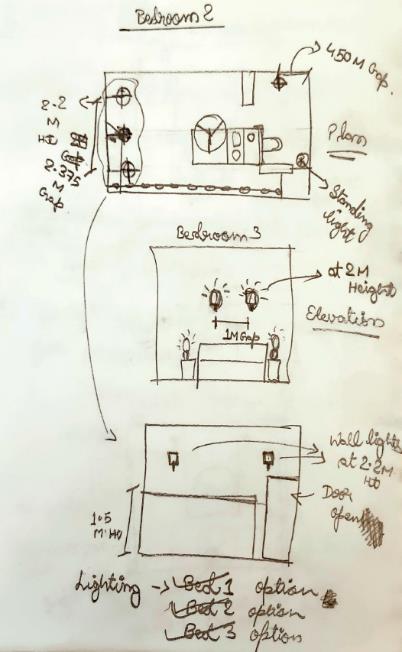 Bedroom 2
450 M Gap.
2.2
M
HT
2.375
M
Gap
Plan
Standing
light
Bedroom 3
at 2M
Height
1M Gap
Elevation
Wall lights
at 2.2M
HT
Door
open
1.5
M HT
Lighting → Bed 1 option
Bed 2 option
Bed 3 option